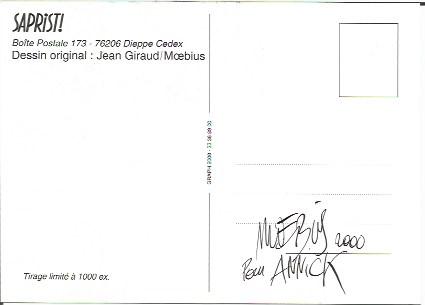 SAPRiST!
Boîte Postale 173 - 76206 Dieppe Cedex
Dessin original : Jean Giraud/Mœbius
MŒBIUS 2000
Pour ANNICK
Tirage limité à 1000 ex.